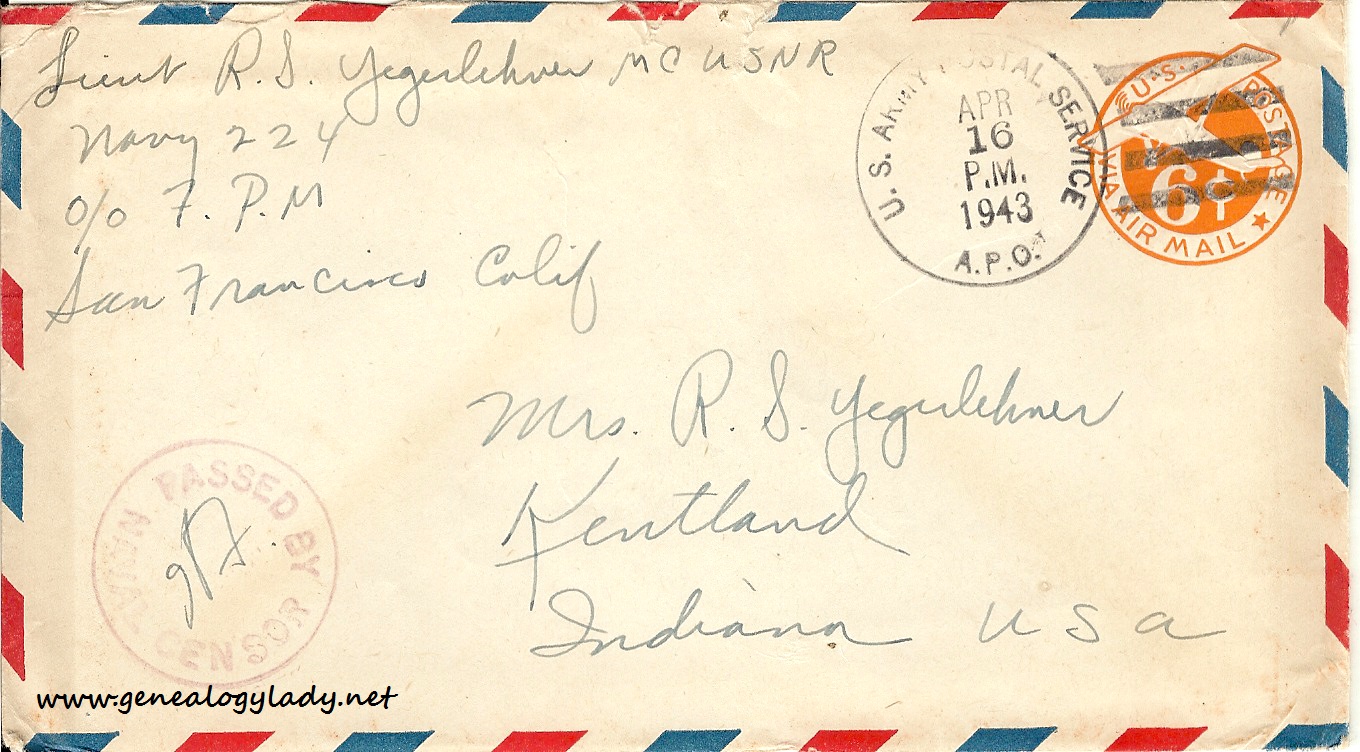 Lieut R. S. Yegerlehner MC USNR
Navy 224
c/o F. P. M
San Francisco Calif
U. S. ARMY POSTAL SERVICE
APR
16
P.M.
1943
A.P.O.
U.S. POSTAGE
6¢
VIA AIR MAIL
Mrs. R. S. Yegerlehner
Kentland
Indiana USA
PASSED BY
NAVAL CENSOR
www.genealogylady.net